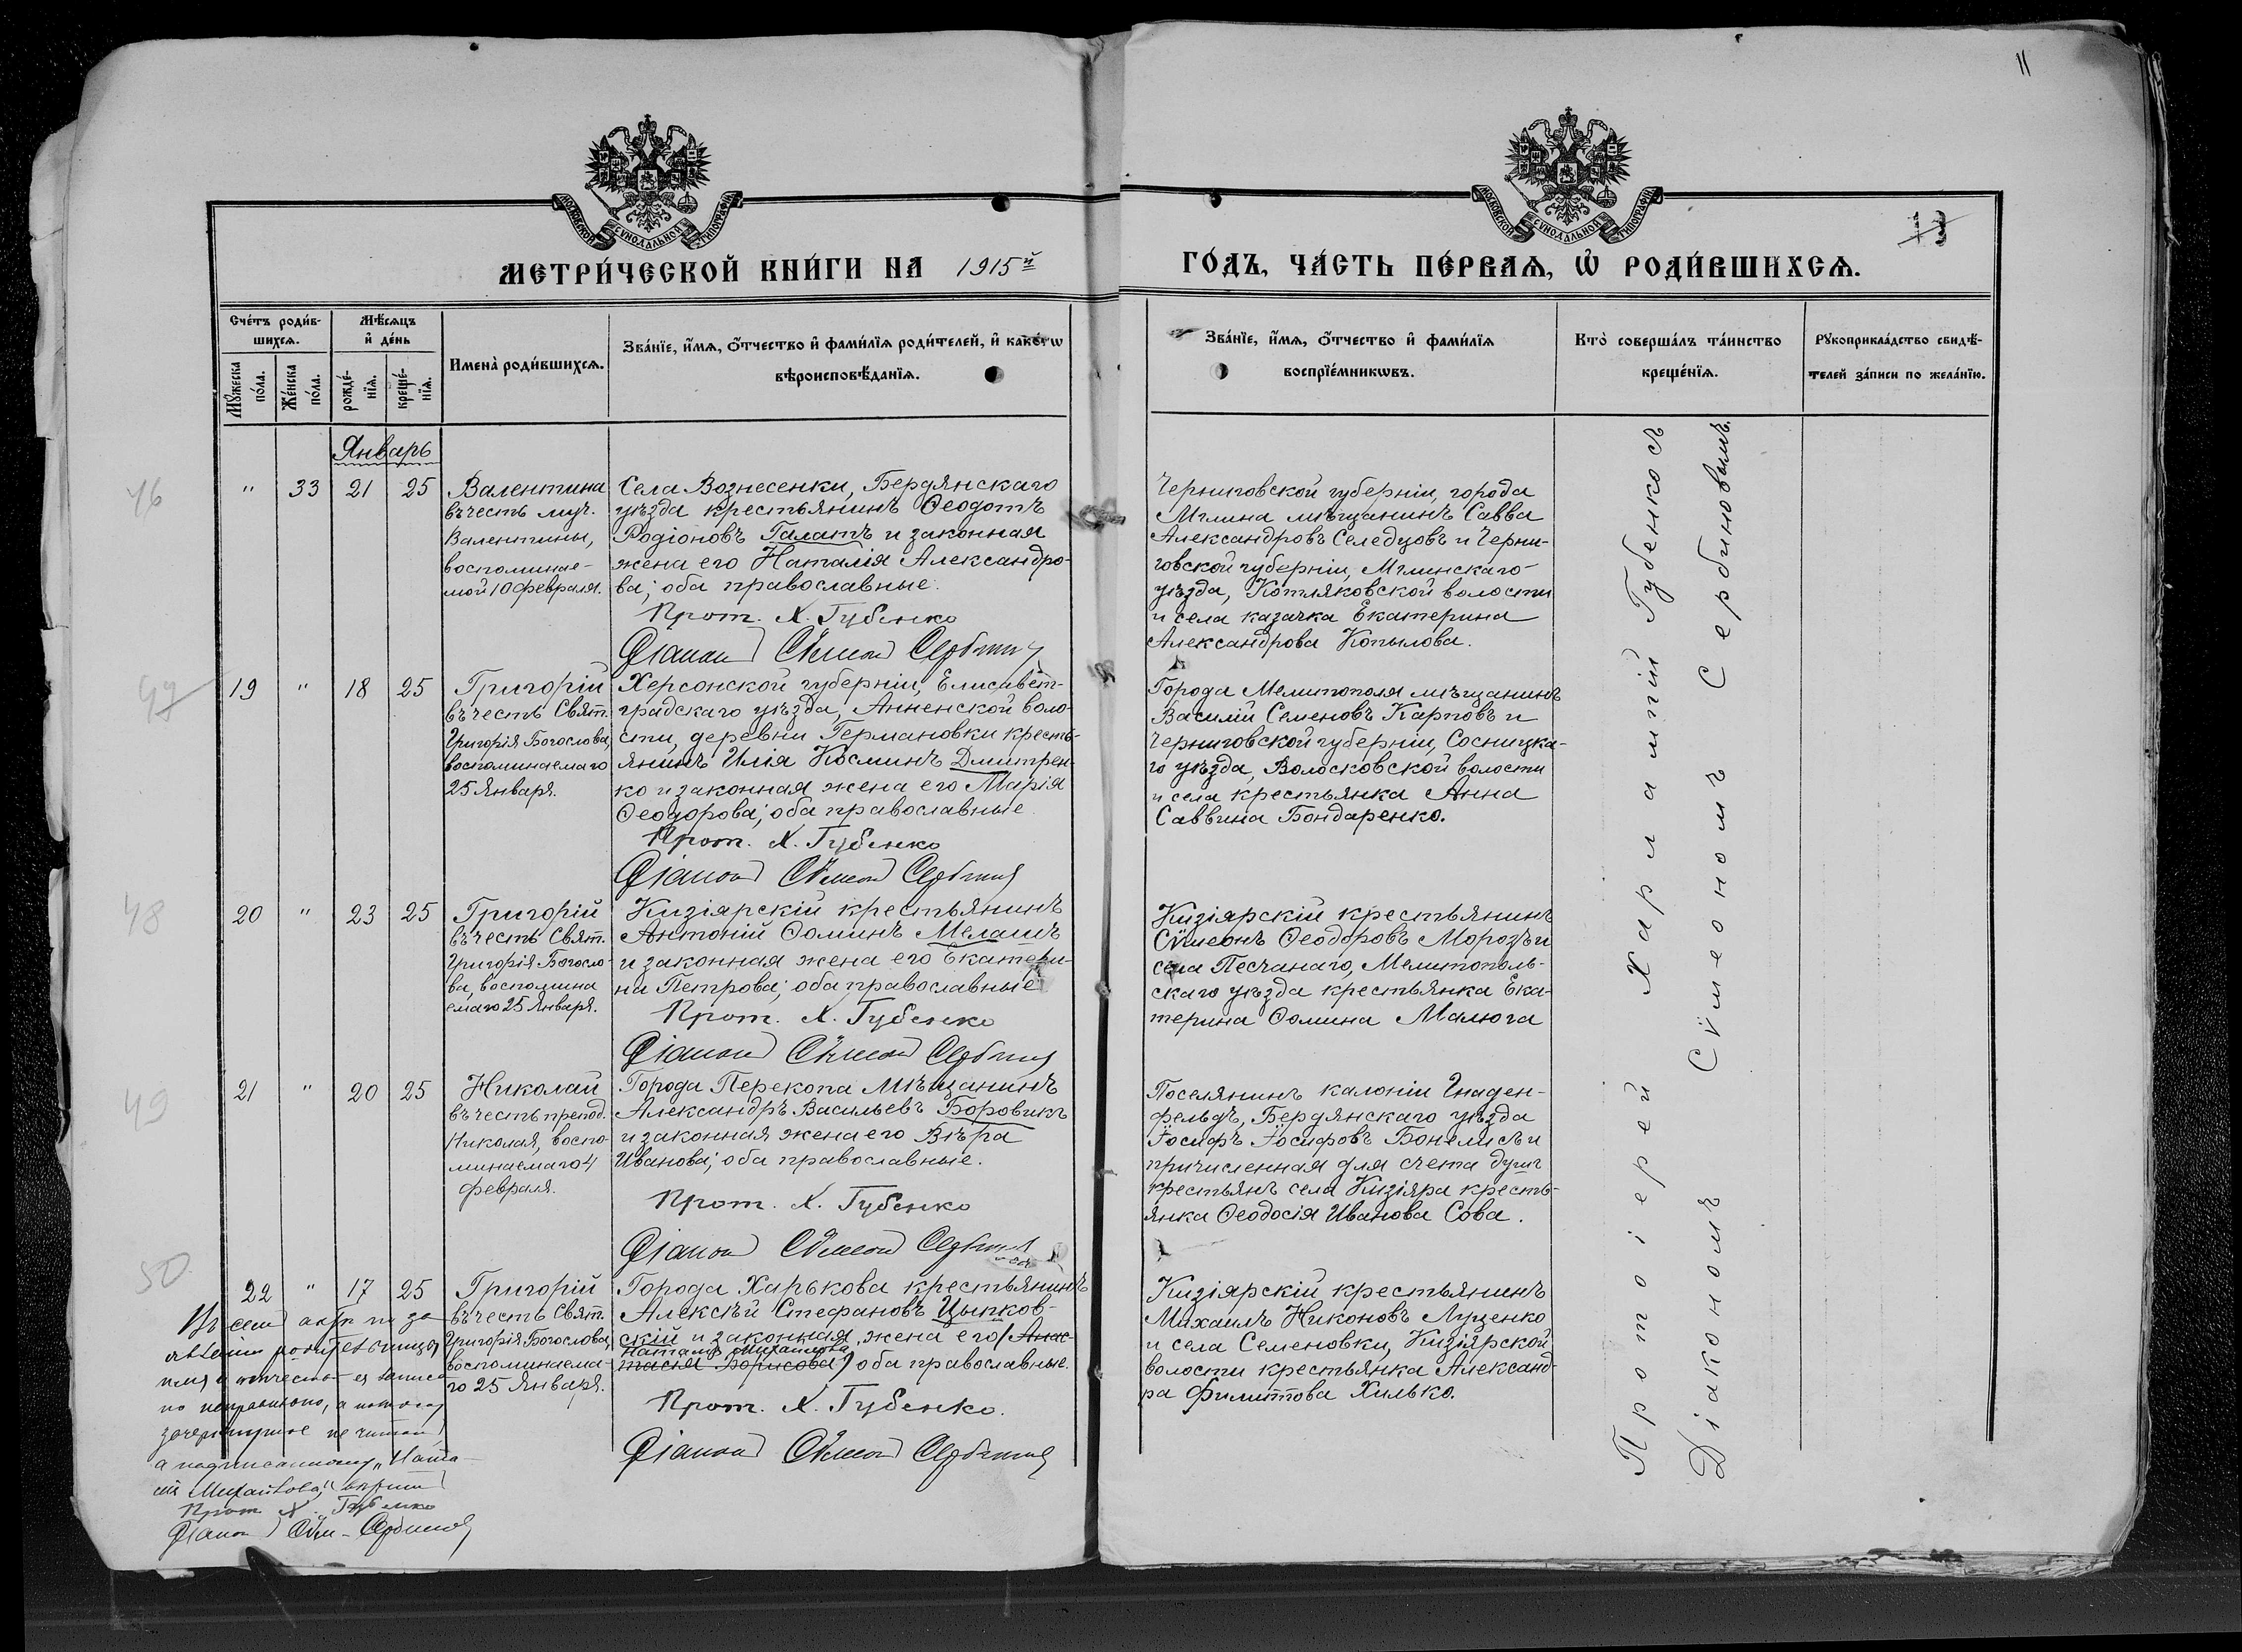 11
13
МОСКОВСКОЙ СѴНОДАЛЬНОЙ ТИПОГРАФІИ
МОСКОВСКОЙ СѴНОДАЛЬНОЙ ТИПОГРАФІИ
МЕТРИ́ЧЕСКОЙ КНИ́ГИ НА 1915й
ГО́ДЪ, ЧА́СТЬ ПЕ́РВАѦ, Ѡ҆ РОДИ́ВШИХСѦ.
Сче́тъ роди́в-
шихсѧ.
Мꙋжеска
по́ла.
Же́нска
по́ла.
Мѣ́сѧцъ
и҆ де́нь
рожде́-
нїѧ.
креще́-
нїѧ.
Имена̀ роди́вшихсѧ.
Зва́нїе, и҆́мѧ, ѻ҆́тчество и҆ фами́лїѧ роди́телей, и҆ како́гѡ
вѣроисповѣ́данїѧ.
Зва́нїе, и҆́мѧ, ѻ҆́тчество и҆ фами́лїѧ
воспрїе́мникѡвъ.
Кто̀ соверша́лъ та́инство
креще́нїѧ.
Рꙋкоприкла́дство свидѣ́-
телей за́писи по жела́нїю.
Январь
46
" 33 21 25
Валентина
въ честь муч.
Валентины,
воспоминае-
мой 10 февраля.
Села Вознесенки, Бердянскаго
уѣзда крестьянинъ Ѳеодотъ
Родіоновъ Галатъ и законная
жена его Наталія Александро-
ва; оба православные.
Прот. Х. Губенко
Діаконъ Сѵмеонъ Сербиновъ
Черниговской губерніи, города
Мглина мѣщанинъ Савва
Александровъ Селедцовъ и Черни-
говской губерніи, Мглинскаго
уѣзда, Котляковской волости
и села казачка Екатерина
Александрова Копылова.
47
19 " 18 25
Григорій
въ честь Свят.
Григорія Богослова,
воспоминаемаго
25 Января.
Херсонской губерніи, Елисавет-
градскаго уѣзда, Анненской воло-
сти, деревни Германовки кресть-
янинъ Илія Косминъ Дмитрен-
ко и законная жена его Марія
Ѳеодорова; оба православные
Прот. Х. Губенко
Діаконъ Сѵмеонъ Сербиновъ
Города Мелитополя мѣщанинъ
Василій Семеновъ Карповъ и
Черниговской губерніи, Сосницка-
го уѣзда, Волосковской волости
и села крестьянка Анна
Саввина Бондаренко.
48
20 " 23 25
Григорій
въ честь Свят.
Григорія Богосло-
ва, воспомина
емаго 25 Января.
Кизіярскій крестьянинъ
Антоній Ѳоминъ Мелашъ
и законная жена его Екатери-
на Петрова; оба православные
Прот. Х. Губенко
Діаконъ Сѵмеонъ Сербиновъ
Кизіярскій крестьянинъ
Сѵмеонъ Ѳеодоровъ Морозъ и
села Песчанаго, Мелитополь-
скаго уѣзда крестьянка Ека-
терина Ѳомина Малюга
49
21 " 20 25
Николай
въ честь препод.
Николая, воспо-
минаемаго 4
февраля.
Города Перекопа мѣщанинъ
Александръ Васильевъ Боровикъ
и законная жена его Вѣра
Иванова; оба православные.
Прот. Х. Губенко
Діаконъ Сѵмеонъ Сербиновъ
Поселянинъ калоніи Гнаден-
фельдъ, Бердянскаго уѣзда
Іосифъ Іосифовъ Бонелисъ и
причисленная для счета душъ
крестьянъ села Кизіяра кресть-
янка Ѳеодосія Иванова Сова.
50
22 " 17 25
Григорій
въ честь Свят.
Григорія Богослова,
воспоминаема-
го 25 Января.
Города Харькова крестьянинъ
Алексѣй Стефановъ Цыпков-
скій и законная жена его (Анас-
Наталія Михайлова
тасія Борисова) оба православные.
Прот. Х. Губенко.
Діаконъ Сѵмеонъ Сербиновъ
Кизіярскій крестьянинъ
Михаилъ Никоновъ Луценко
и села Семеновки, Кизіярской
волости крестьянка Александ-
ра Филиппова Хилько.
Въ семъ актѣ по за-
явленію родительницы,
имя и отчество ея записа
но неправильно, а потому
зачеркнутое не читать
а надписанному "Ната-
лія Михайлова" вѣрить
Прот. Х. Губенко
Діаконъ Сѵм. Сербиновъ
Протоіерей Харлампій Губенко съ
Діакономъ Сѵмеономъ Сербиновымъ.